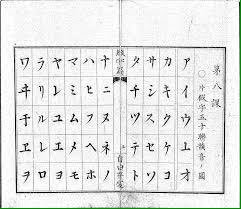 第八課
○片假字五十聯韻音ノ圖
アイウエオ
カキクケコ
サシスセソ
タチツテト
綴字篇
ナニヌネノ
ハヒフヘホ
マミムメモ
ヤイユエヨ
ラリルレロ
ワヰウヱヲ